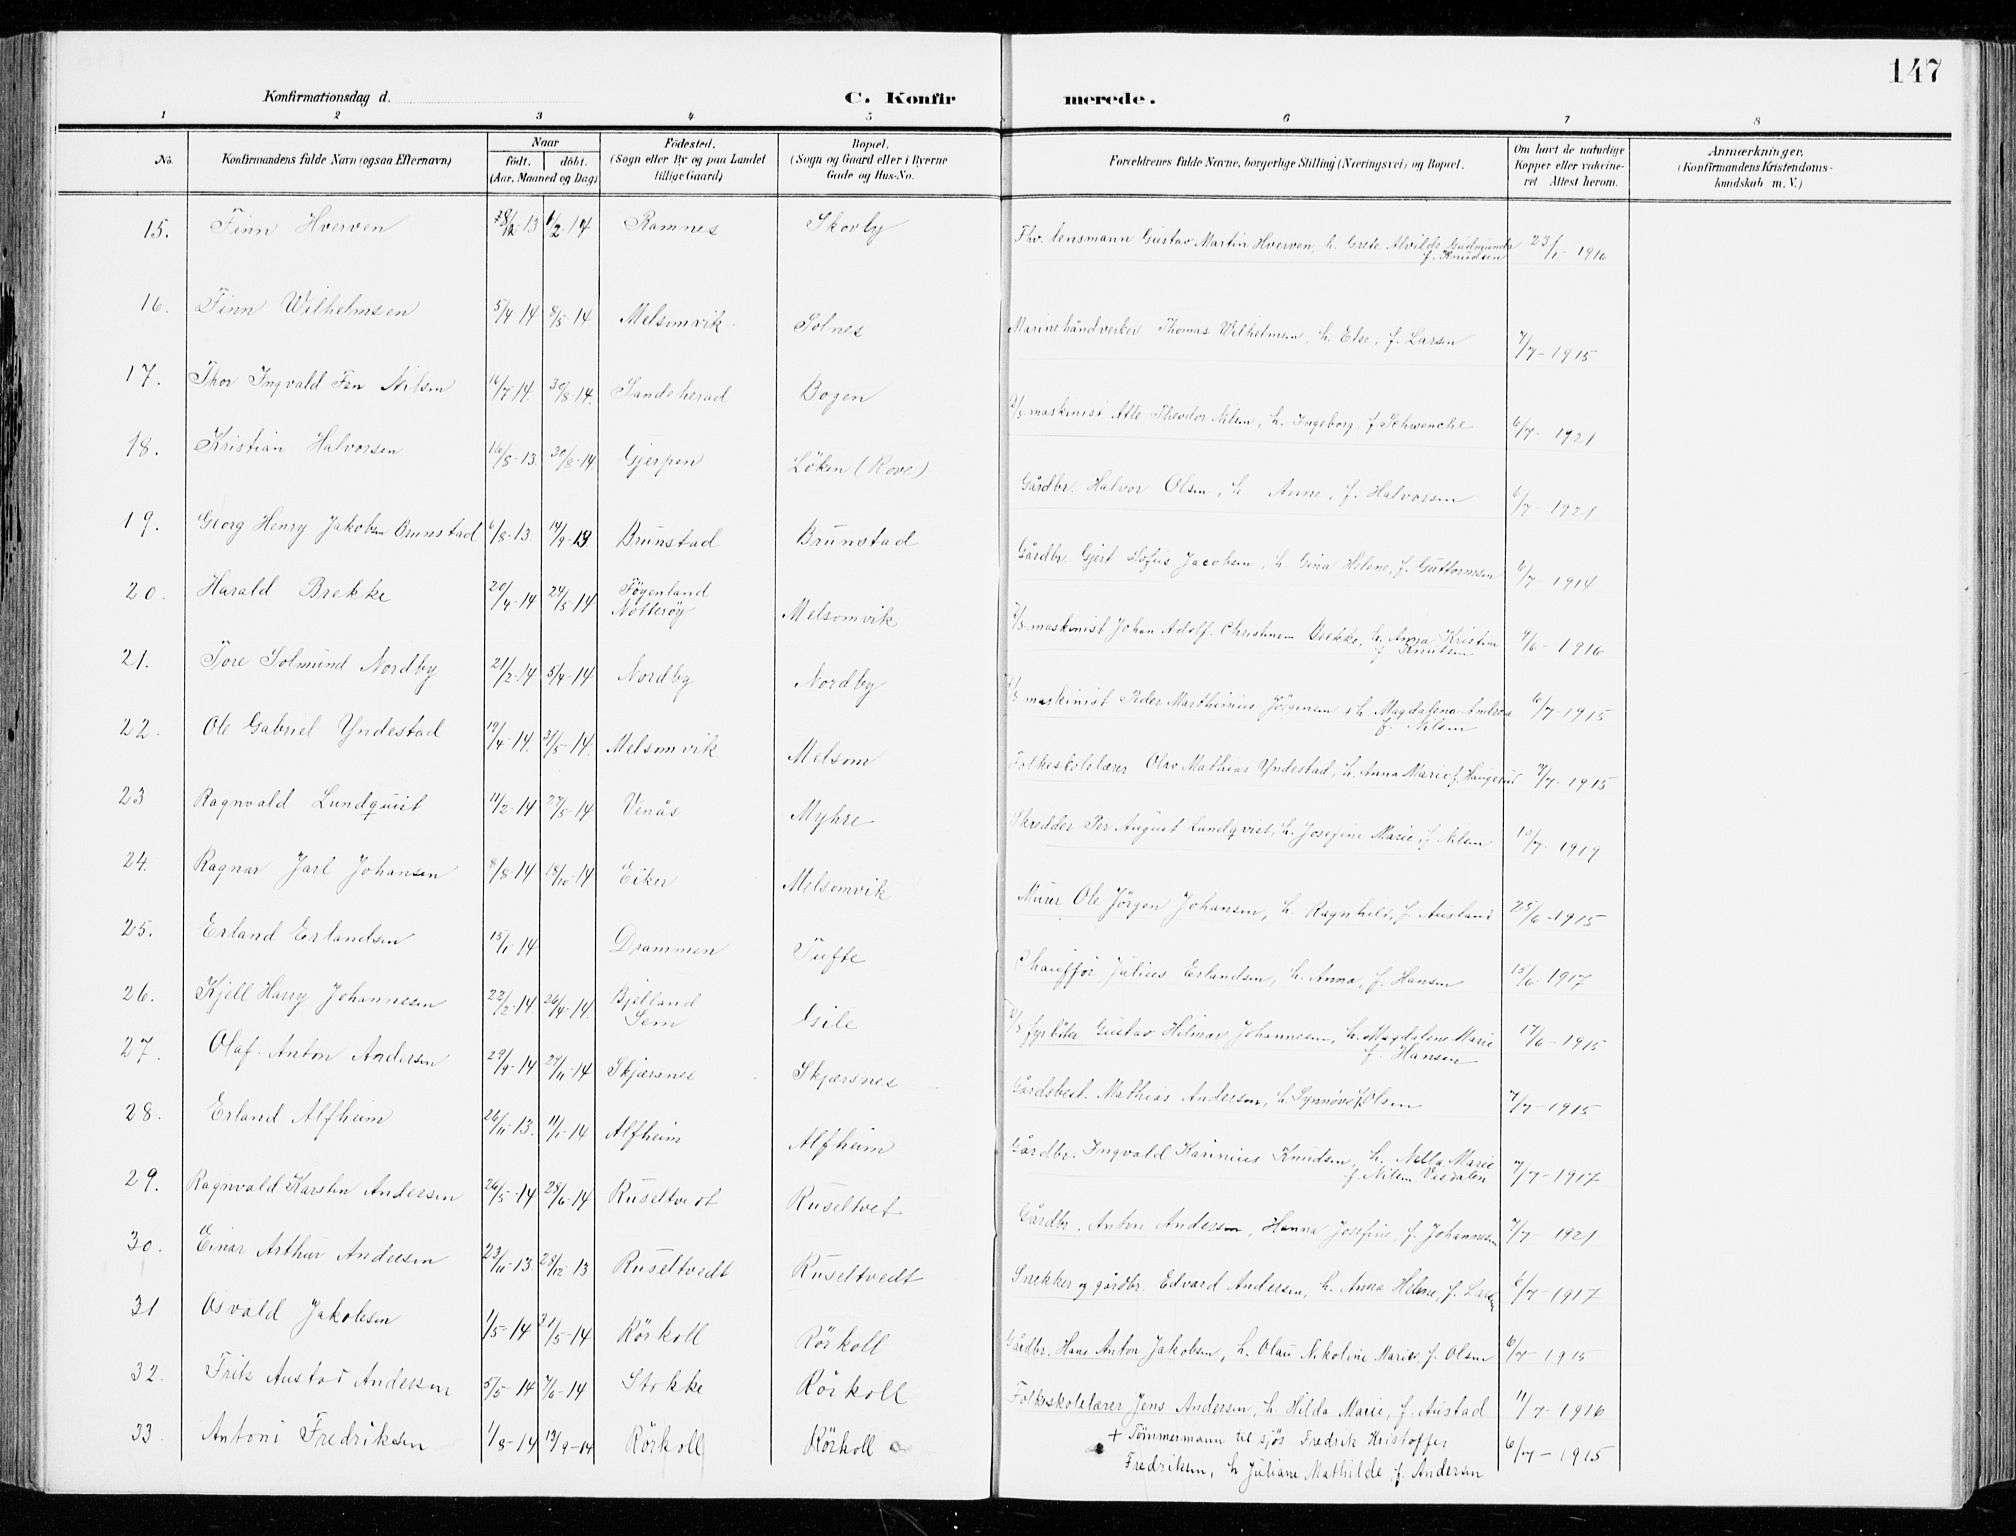 147
Konfirmationsdag d.
C. Konfirmerede.
1 2 3 4 5 6 7 8
No. Konfirmandens fulde Navn (ogsaa Efternavn) Naar født. døbt. (Aar, Maaned og Dag) Fødested. (Sogn eller By og paa Landet tillige Gaard) Bopæl. (Sogn og Gaard eller i Byerne Gade og Hus-No. Forældrenes fulde Navne, borgerlige Stilling (Næringsvei) og Bopæl. Om havt de naturlige Kopper eller vakcineret Attest herom. Anmærkninger. (Konfirmandens Kristendomskundskab m. V.)
15. Finn Hverven 28/12-13 1/2-14 Ramnes Skovby Fhv. lensmann Gustav Martin Hverven, h. Grete Alvilde Gudmunda f. Knudsen 23/1-1916
16. Finn Wilhelmsen 5/4-14 8/5-14. Melsomvik. Solnes Marinehåndverker Thomas Wilhelmsen, h. Else, f. Larsen 7/7-1915
17. Thor Ingvald Fen Nilsen 16/7-14. 30/8-14. Sandeherad Bogen maskinist Atle Theodor Nilsen, h. Ingeborg, f. Schwencke 6/7-1921
18. Kristian Halvorsen 16/8-13. 30/8-14 Gjerpen Løken (Rove) Gårdbr. Halvor Olsen, h. Anne, f. Halvorsen 6/7-1921
19. Georg Henry Jakobsen Brunstad 6/8-13. 14/9-13 Brunstad Brunstad Gårdbr. Gjert Sofus Jacobsen, h. Gina Helene, f. Guttormsen 6/7-1914
20. Harald Brekke 20/4-14 24/5-14 Føyenland Nøtterøy Melsomvik maskinist Johan Adolf Christensen Brekke, h. Anna Kristine f. Knutsen 9/6-1916
21. Tore Solmund Nordby 21/2-14 5/4-14 Nordby Nordby maskinist Peder Marthinius Jörgensen h. Magdalena Andrea f. Nilsen 6/7-1915
22. Ole Gabriel Yndestad 19/4-14. 31/5-14. Melsomvik Melsom Folkeskolelærer Olav Mathias Yndestad, h. Anna Marie f. Haugerud 7/7-1915
23 Ragnvald Lundquist 11/2-14 27/5-14 Venås Myhre Skredder Per August Lundqvist, h. Josefine Marie, f. Nilsen 10/7-1919
24. Ragnar Jarl Johansen 8/8-14 18/10-14 Eiker Melsomvik Murer Ole Jørgen Johansen, h. Ragnhild, f. Ausland 25/6-1915
25. Erland Erlandsen 15/1-14 Drammen Tufte Chauffør Julius Erlandsen, h. Anna, f. Hansen 15/6-1917
26. Kjell Harry Johannesen 22/2-14 26/4-14. Bjelland Sem Gile fyrbøter Gustav Hilmar Johannesen, h. Magdalene Marie f. Hansen 17/6-1915
27. Olaf Anton Andersen 29/9-14 29/11-14 Skjærsnes Skjærsnes Gårdsbest. Mathias Andersen, h. Synnøve f. Olsen 7/7-1915
28. Erland Alfheim 26/11-13. 11/1-14 Alfheim Alfheim Gårdbr. Ingvald Karinius Knudsen, h. Nella Marie f. Nilsen Vesdalen 7/7-1917
29. Ragnvald Karsten Andersen 26/5-14 28/6-14 Ruseltvedt Ruseltvet Gårdbr. Anton Andersen, Hanna Josefine, f. Johannesen 7/7-1921
30. Einar Arthur Andersen 23/11-13 28/12-13 Ruseltvedt Ruseltvedt Snekker og gårdbr. Edvard Andersen, h. Anna Helene, f. Larsen 6/7-1917
31 Osvald Jakobsen 1/5-14 21/5-14 Rörkoll Rörkoll Gårdbr. Hans Anton Jakobsen, h. Olau Nikoline Marie, f. Olsen 6/7-1915
32. Frits Austad Andersen 5/5-14 7/6-14 Stokke Rörkoll Folkeskolelærer Jens Andersen, h. Hilda Marie, f. Austad 11/7-1916
33. Antoni Fredriksen 1/8-14 13/9-14 Rörkoll Rörkoll + Tömmermann til sjøs Fredrik Kristoffer Fredriksen, h. Juliane Mathilde, f. Andersen 6/7-1915